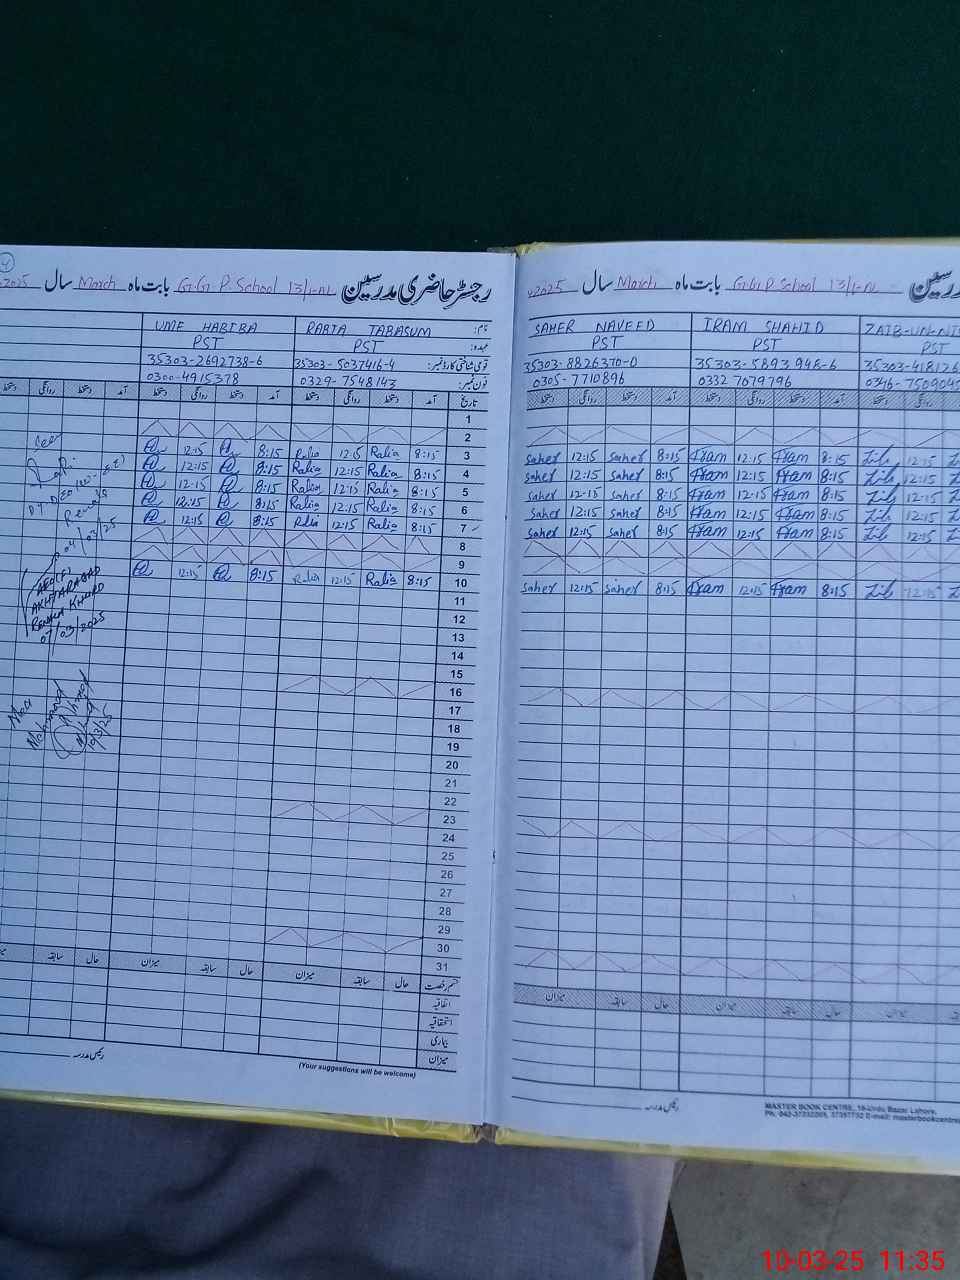 4
2025 سال March بابت ماہ G.G.P. School 13/1-AL رجسٹر حاضری مدرسین
UME HABIBA RABIA TABASUM نام:
PST PST عہدہ:
35303-2692738-6 35303-5037416-4 قومی شناختی کارڈ نمبر:
0300-4915378 0329-7548143 فون نمبر:
روانگی دستخط آمد دستخط روانگی دستخط آمد دستخط روانگی دستخط آمد تاریخ
1
2
12:15 8:15 Rabia 12:15 Rabia 8:15 3
12:15 8:15 Rabia 12:15 Rabia 8:15 4
12:15 8:15 Rabia 12:15 Rabia 8:15 5
12:15 8:15 Rabia 12:15 Rabia 8:15 6
12:15 8:15 Rabia 12:15 Rabia 8:15 7
8
9
12:15 8:15 Rabia 12:15 Rabia 8:15 10
11
12
13
14
15
16
17
18
19
20
21
22
23
24
25
26
27
28
29
30
31
04/03/25
AEO(F)
AKHTARABAD
RENALA KHURD
07/03/2025
10/3/25
سابقہ حال میزان سابقہ حال میزان سابقہ حال قسم رخصت
اتفاقیہ
استحقاقیہ
بیماری
میزان
رئیس مدرسہ
(Your suggestions will be welcome)
2025 سال March بابت ماہ G.G.P. School 13/1-AL
SAHER NAVEED IRAM SHAHID
PST PST PST
35303-8826370-0 35303-5893948-6
0305-7710896 0332 7679796
دستخط روانگی دستخط آمد دستخط روانگی دستخط آمد دستخط روانگی
Saher 12:15 Saher 8:15 Iram 12:15 Iram 8:15 12:15
Saher 12:15 Saher 8:15 Iram 12:15 Iram 8:15 12:15
Saher 12:15 Saher 8:15 Iram 12:15 Iram 8:15 12:15
Saher 12:15 Saher 8:15 Iram 12:15 Iram 8:15 12:15
Saher 12:15 Saher 8:15 Iram 12:15 Iram 8:15 12:15
Saher 12:15 Saher 8:15 Iram 12:15 Iram 8:15 12:15
میزان سابقہ حال میزان سابقہ حال میزان
رئیس مدرسہ
MASTER BOOK CENTRE, 19-Urdu Bazar Lahore.
10-03-25 11:35